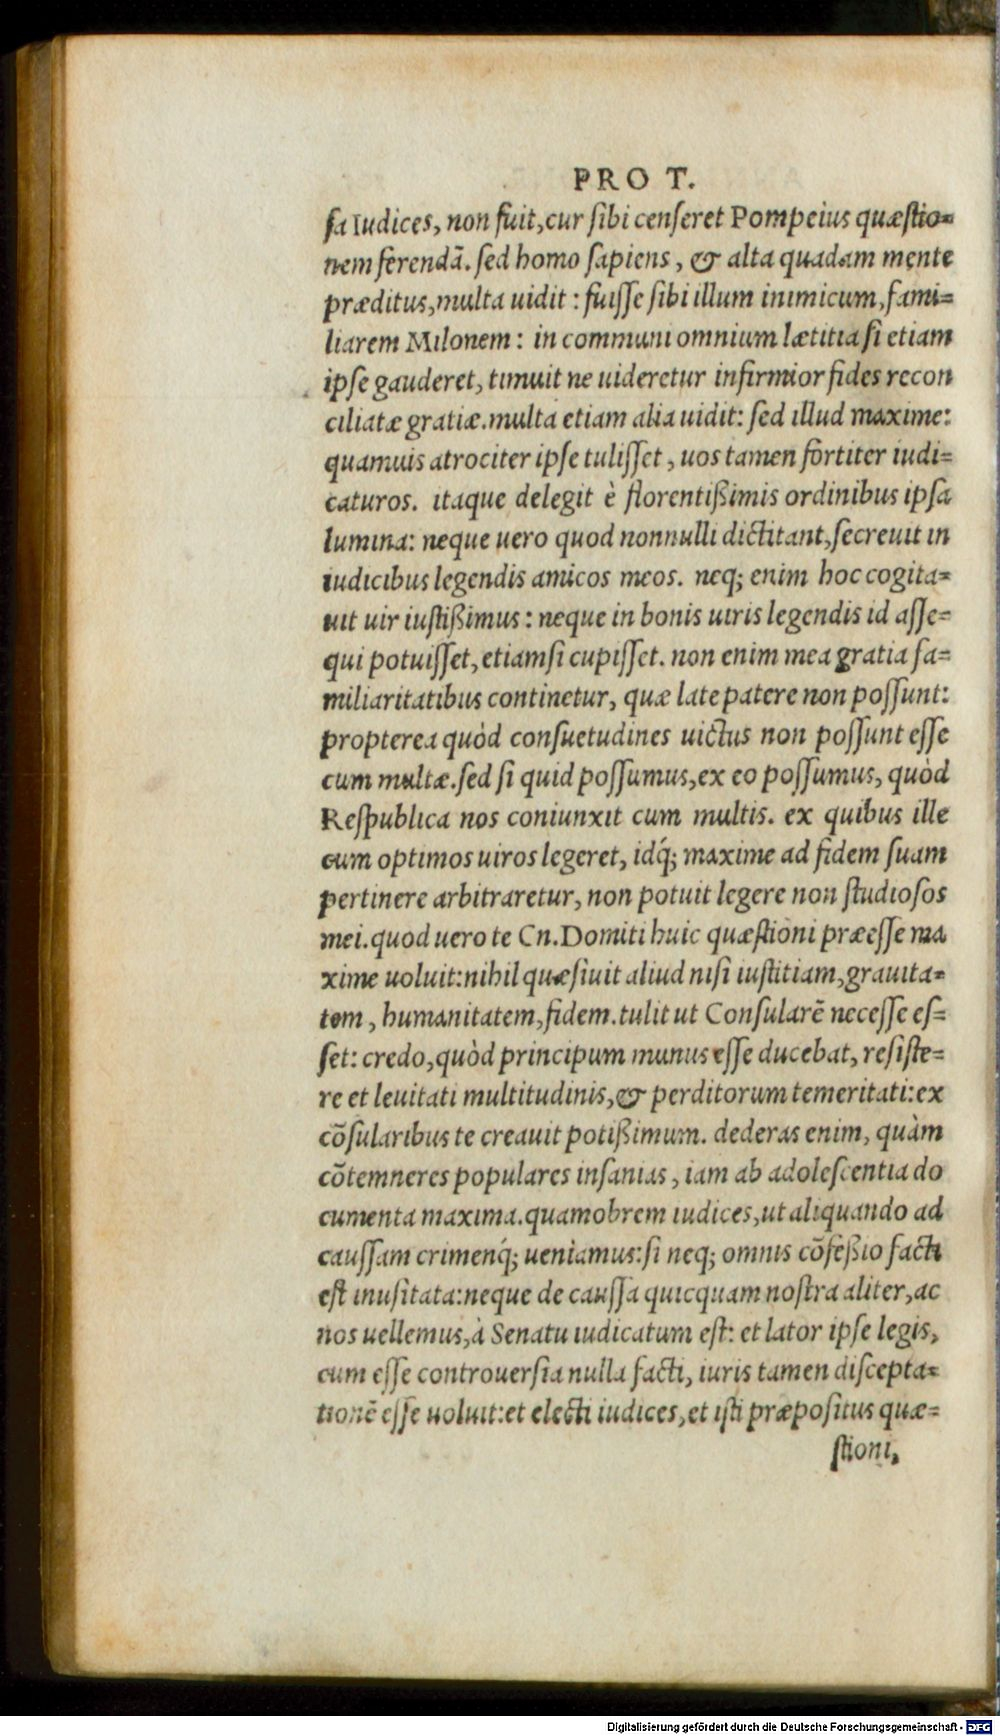 PRO T.
sa Iudices, non fuit, cur sibi censeret Pompeius quæstio=
nem ferendā. sed homo sapiens, & alta quadam mente
præditus, multa uidit: fuisse sibi illum inimicum, fami=
liarem Milonem: in communi omnium lætitia si etiam
ipse gauderet, timuit ne uideretur infirmior fides recon
ciliatæ gratiæ. multa etiam alia uidit: sed illud maxime:
quamuis atrociter ipse tulisset, uos tamen fortiter iudi=
caturos. itaque delegit è florentißimis ordinibus ipsa
lumina: neque uero quod nonnulli dictitant, secreuit in
iudicibus legendis amicos meos. neq; enim hoc cogita=
uit uir iustißimus: neque in bonis uiris legendis id asse=
qui potuisset, etiamsi cupisset. non enim mea gratia fa=
miliaritatibus continetur, quæ late patere non possunt:
propterea quòd consuetudines uictus non possunt esse
cum multæ. sed si quid possumus, ex eo possumus, quòd
Respublica nos coniunxit cum multis. ex quibus ille
cum optimos uiros legeret, idq́; maxime ad fidem suam
pertinere arbitraretur, non potuit legere non studiosos
mei. quod uero te Cn. Domiti huic quæstioni præesse ma
xime uoluit: nihil quæsiuit aliud nisi iustitiam, grauita=
tem, humanitatem, fidem. tulit ut Consularē necesse es=
set: credo, quòd principum munus esse ducebat, resiste=
re et leuitati multitudinis, & perditorum temeritati: ex
cōsularibus te creauit potißimum. dederas enim, quàm
cōtemneres populares insanias, iam ab adolescentia do
cumenta maxima. quamobrem iudices, ut aliquando ad
caussam crimenq́; ueniamus: si neq; omnis cōfeßio facti
est inusitata: neque de caussa quicquam nostra aliter, ac
nos uellemus, à Senatu iudicatum est: et lator ipse legis,
cum esse controuersia nulla facti, iuris tamen discepta=
tionē esse uoluit: et electi iudices, et isti præpositus quæ=
stioni,
Digitalisierung gefördert durch die Deutsche Forschungsgemeinschaft - DFG